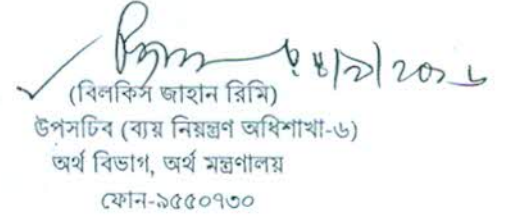 (বিলকিস জাহান রিমি)
উপসচিব (ব্যয় নিয়ন্ত্রণ অধিশাখা-৬)
অর্থ বিভাগ, অর্থ মন্ত্রণালয়
ফোন-৯৫৫০৭৩০